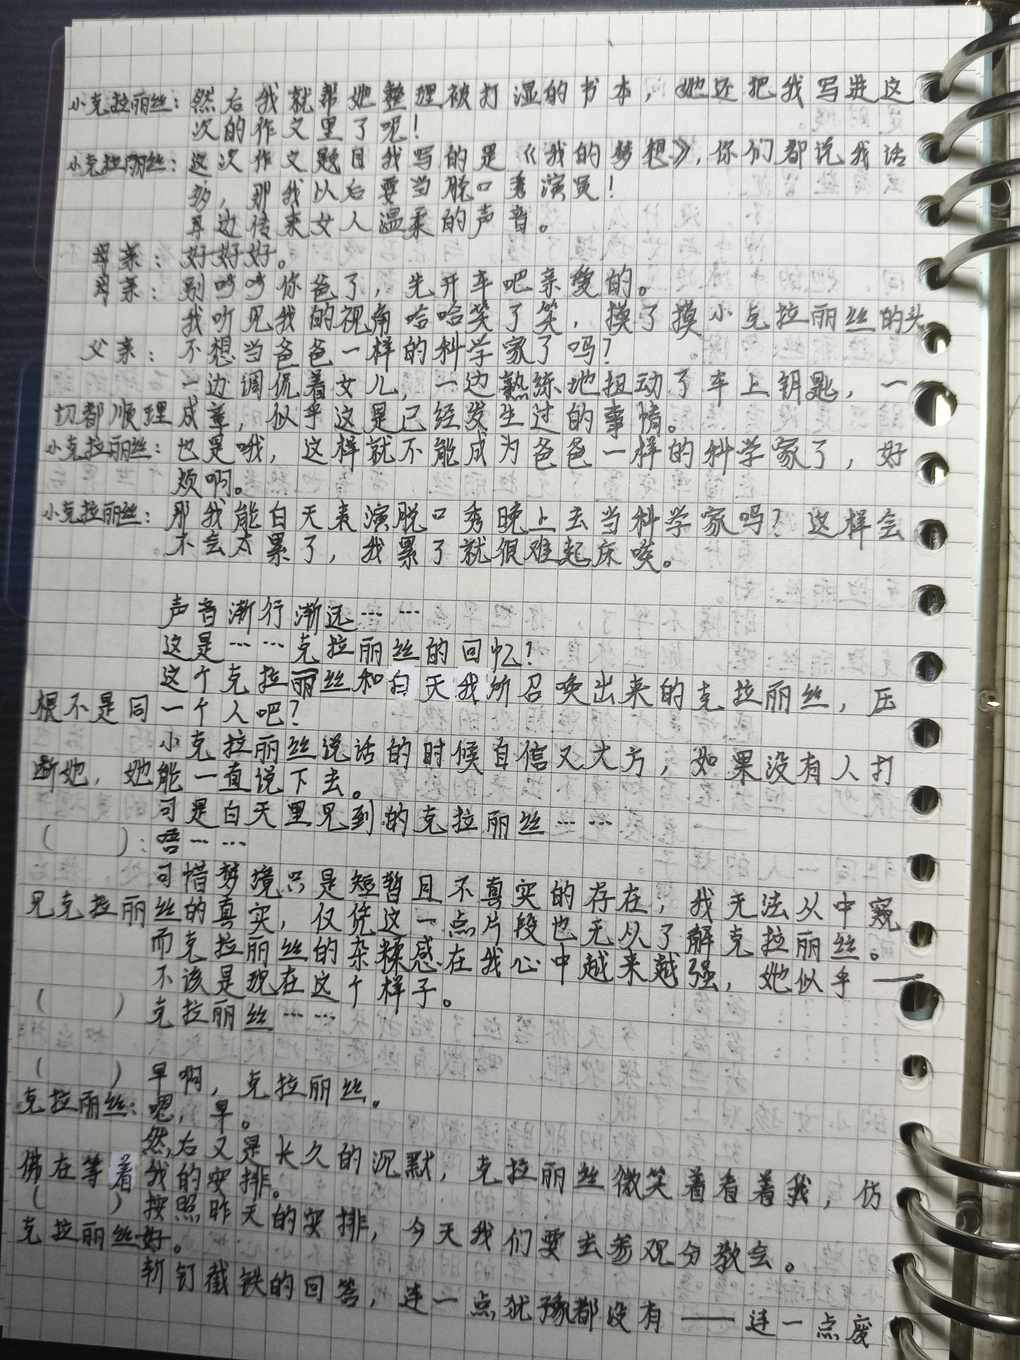 小克拉丽丝：然后我就帮她整理被打湿的书本，她还把我写进这
次的作文里了呢！
小克拉丽丝：这次作文题目我写的是《我的梦想》，你们都说我话
多，那我以后要当脱口秀演员！
耳边传来女人温柔的声音。
母亲：好好好。
母亲：别吵吵你爸了，先开车吧亲爱的。
我听见我的视角哈哈笑了笑，摸了摸小克拉丽丝的头
父亲：不想当爸爸一样的科学家了吗？
一边调侃着女儿，一边熟练地扭动了车上钥匙，一
切都顺理成章，似乎这是已经发生过的事情。
小克拉丽丝：也是哦，这样就不能成为爸爸一样的科学家了，好
烦啊。
小克拉丽丝：那我能白天表演脱口秀晚上去当科学家吗？这样会
不会太累了，我累了就很难起床唉。
声音渐行渐远……
这是……克拉丽丝的回忆？
这个克拉丽丝和白天我所召唤出来的克拉丽丝，压
根不是同一个人吧？
小克拉丽丝说话的时候自信又大方，如果没有人打
断她，她能一直说下去。
可是白天里见到的克拉丽丝……
（ ）：唔……
可惜梦境只是短暂且不真实的存在，我无法从中窥
见克拉丽丝的真实，仅凭这一点片段也无从了解克拉丽丝。
而克拉丽丝的杂糅感在我心中越来越强，她似乎——
不该是现在这个样子。
（ ）克拉丽丝……
（ ）早啊，克拉丽丝。
克拉丽丝：嗯，早。
然后又是长久的沉默，克拉丽丝微笑着看着我，仿
佛在等着我的安排。
（ ）按照昨天的安排，今天我们要去参观分教会。
克拉丽丝：好。
斩钉截铁的回答，连一点犹豫都没有——连一点废